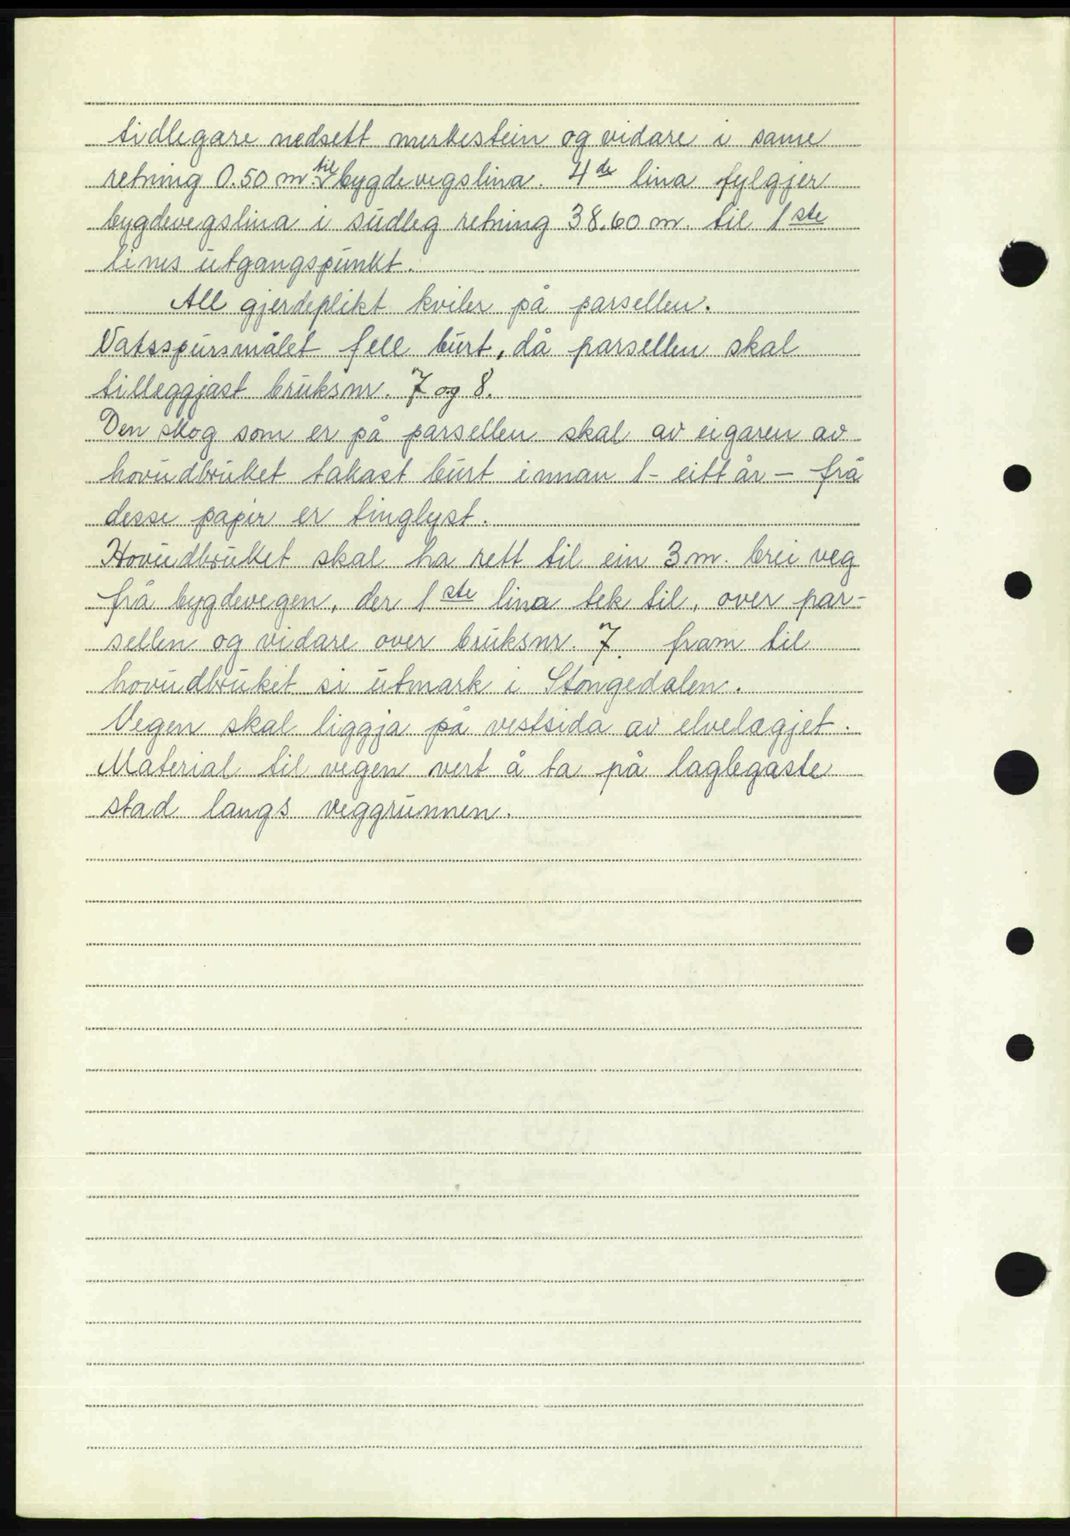 tidlegare nedsett merkestein og vidare i same
retning 0.50 m. til bygdevegslina. 4de lina fylgjer
bygdevegslina i sudleg retning 38.60 m. til 1ste
lines utgangspunkt.
All gjerdeplikt kviler på parsellen.
Vatsspursmålet fell burt, då parsellen skal
tilleggjast bruksnr. 7 og 8.
Den skog som er på parsellen skal av eigaren av
hovudbruket takast burt innan 1- eitt år - frå
desse papir er tinglyst.
Hovudbruket skal ha rett til ein 3 m. brei veg
frå bygdevegen, der 1ste lina tek til, over par-
sellen og vidare over bruksnr. 7. fram til
hovudbruket si utmark i Stongedalen.
Vegen skal liggja på vestsida av elvelægjet.
Material til vegen vert å ta på laglegaste
stad langs veggrunnen.